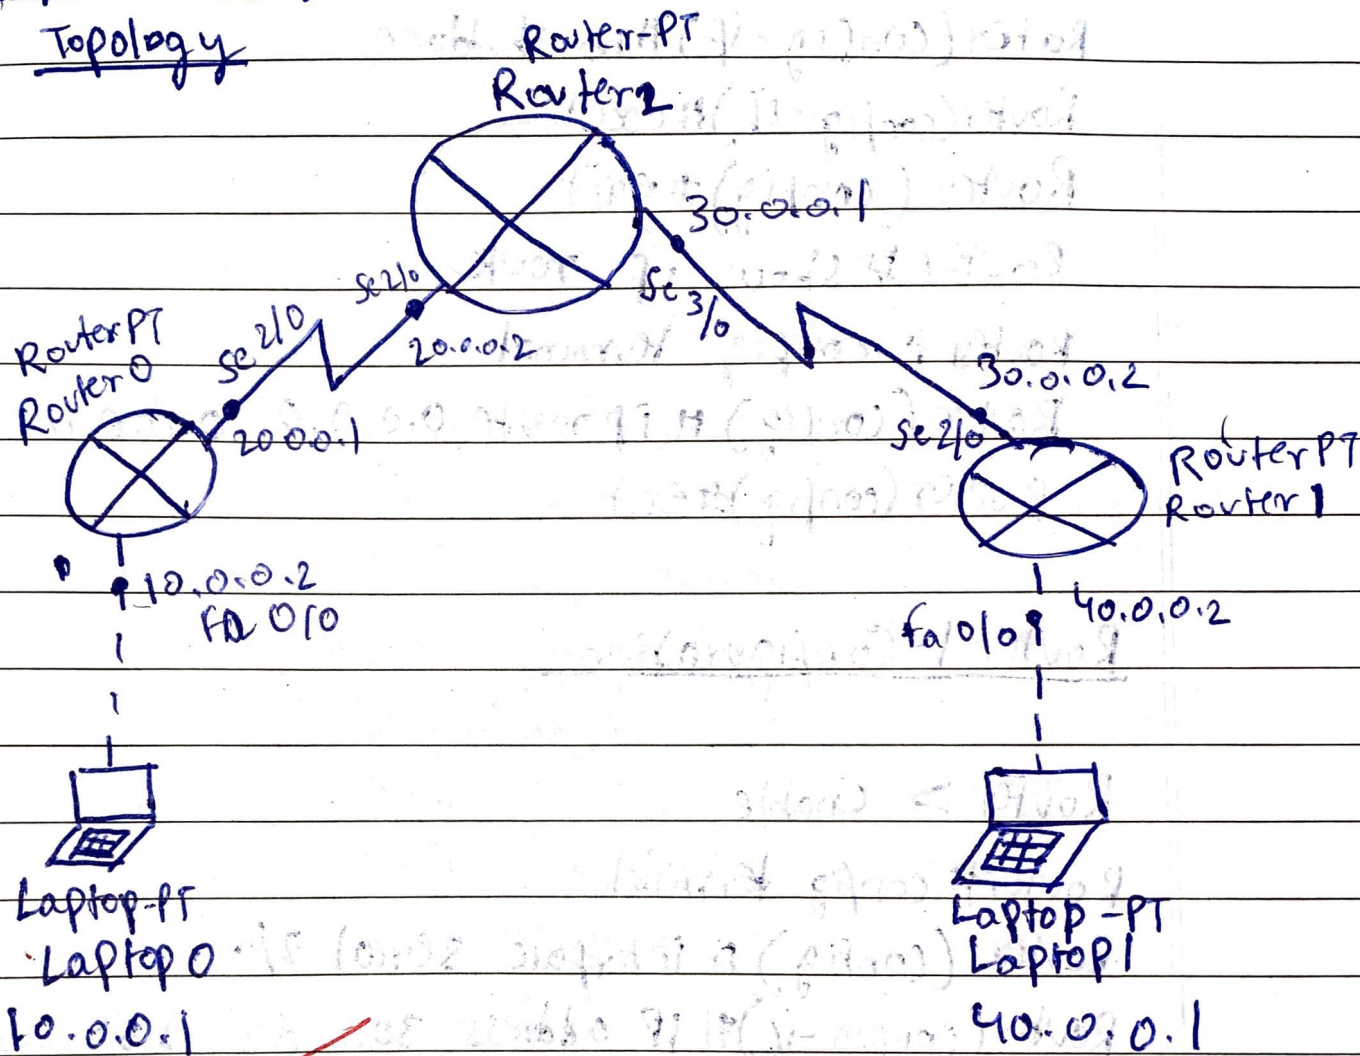 Topology
Router-PT
Router2
30.0.0.1
Se 3/0
Se2/0
20.0.0.2
Se 2/0
20.0.0.1
RouterPT
Router0
30.0.0.2
Se 2/0
RouterPT
Router1
10.0.0.2
fa 0/0
40.0.0.2
fa 0/0
Laptop-PT
Laptop 0
10.0.0.1
Laptop-PT
Laptop1
40.0.0.1